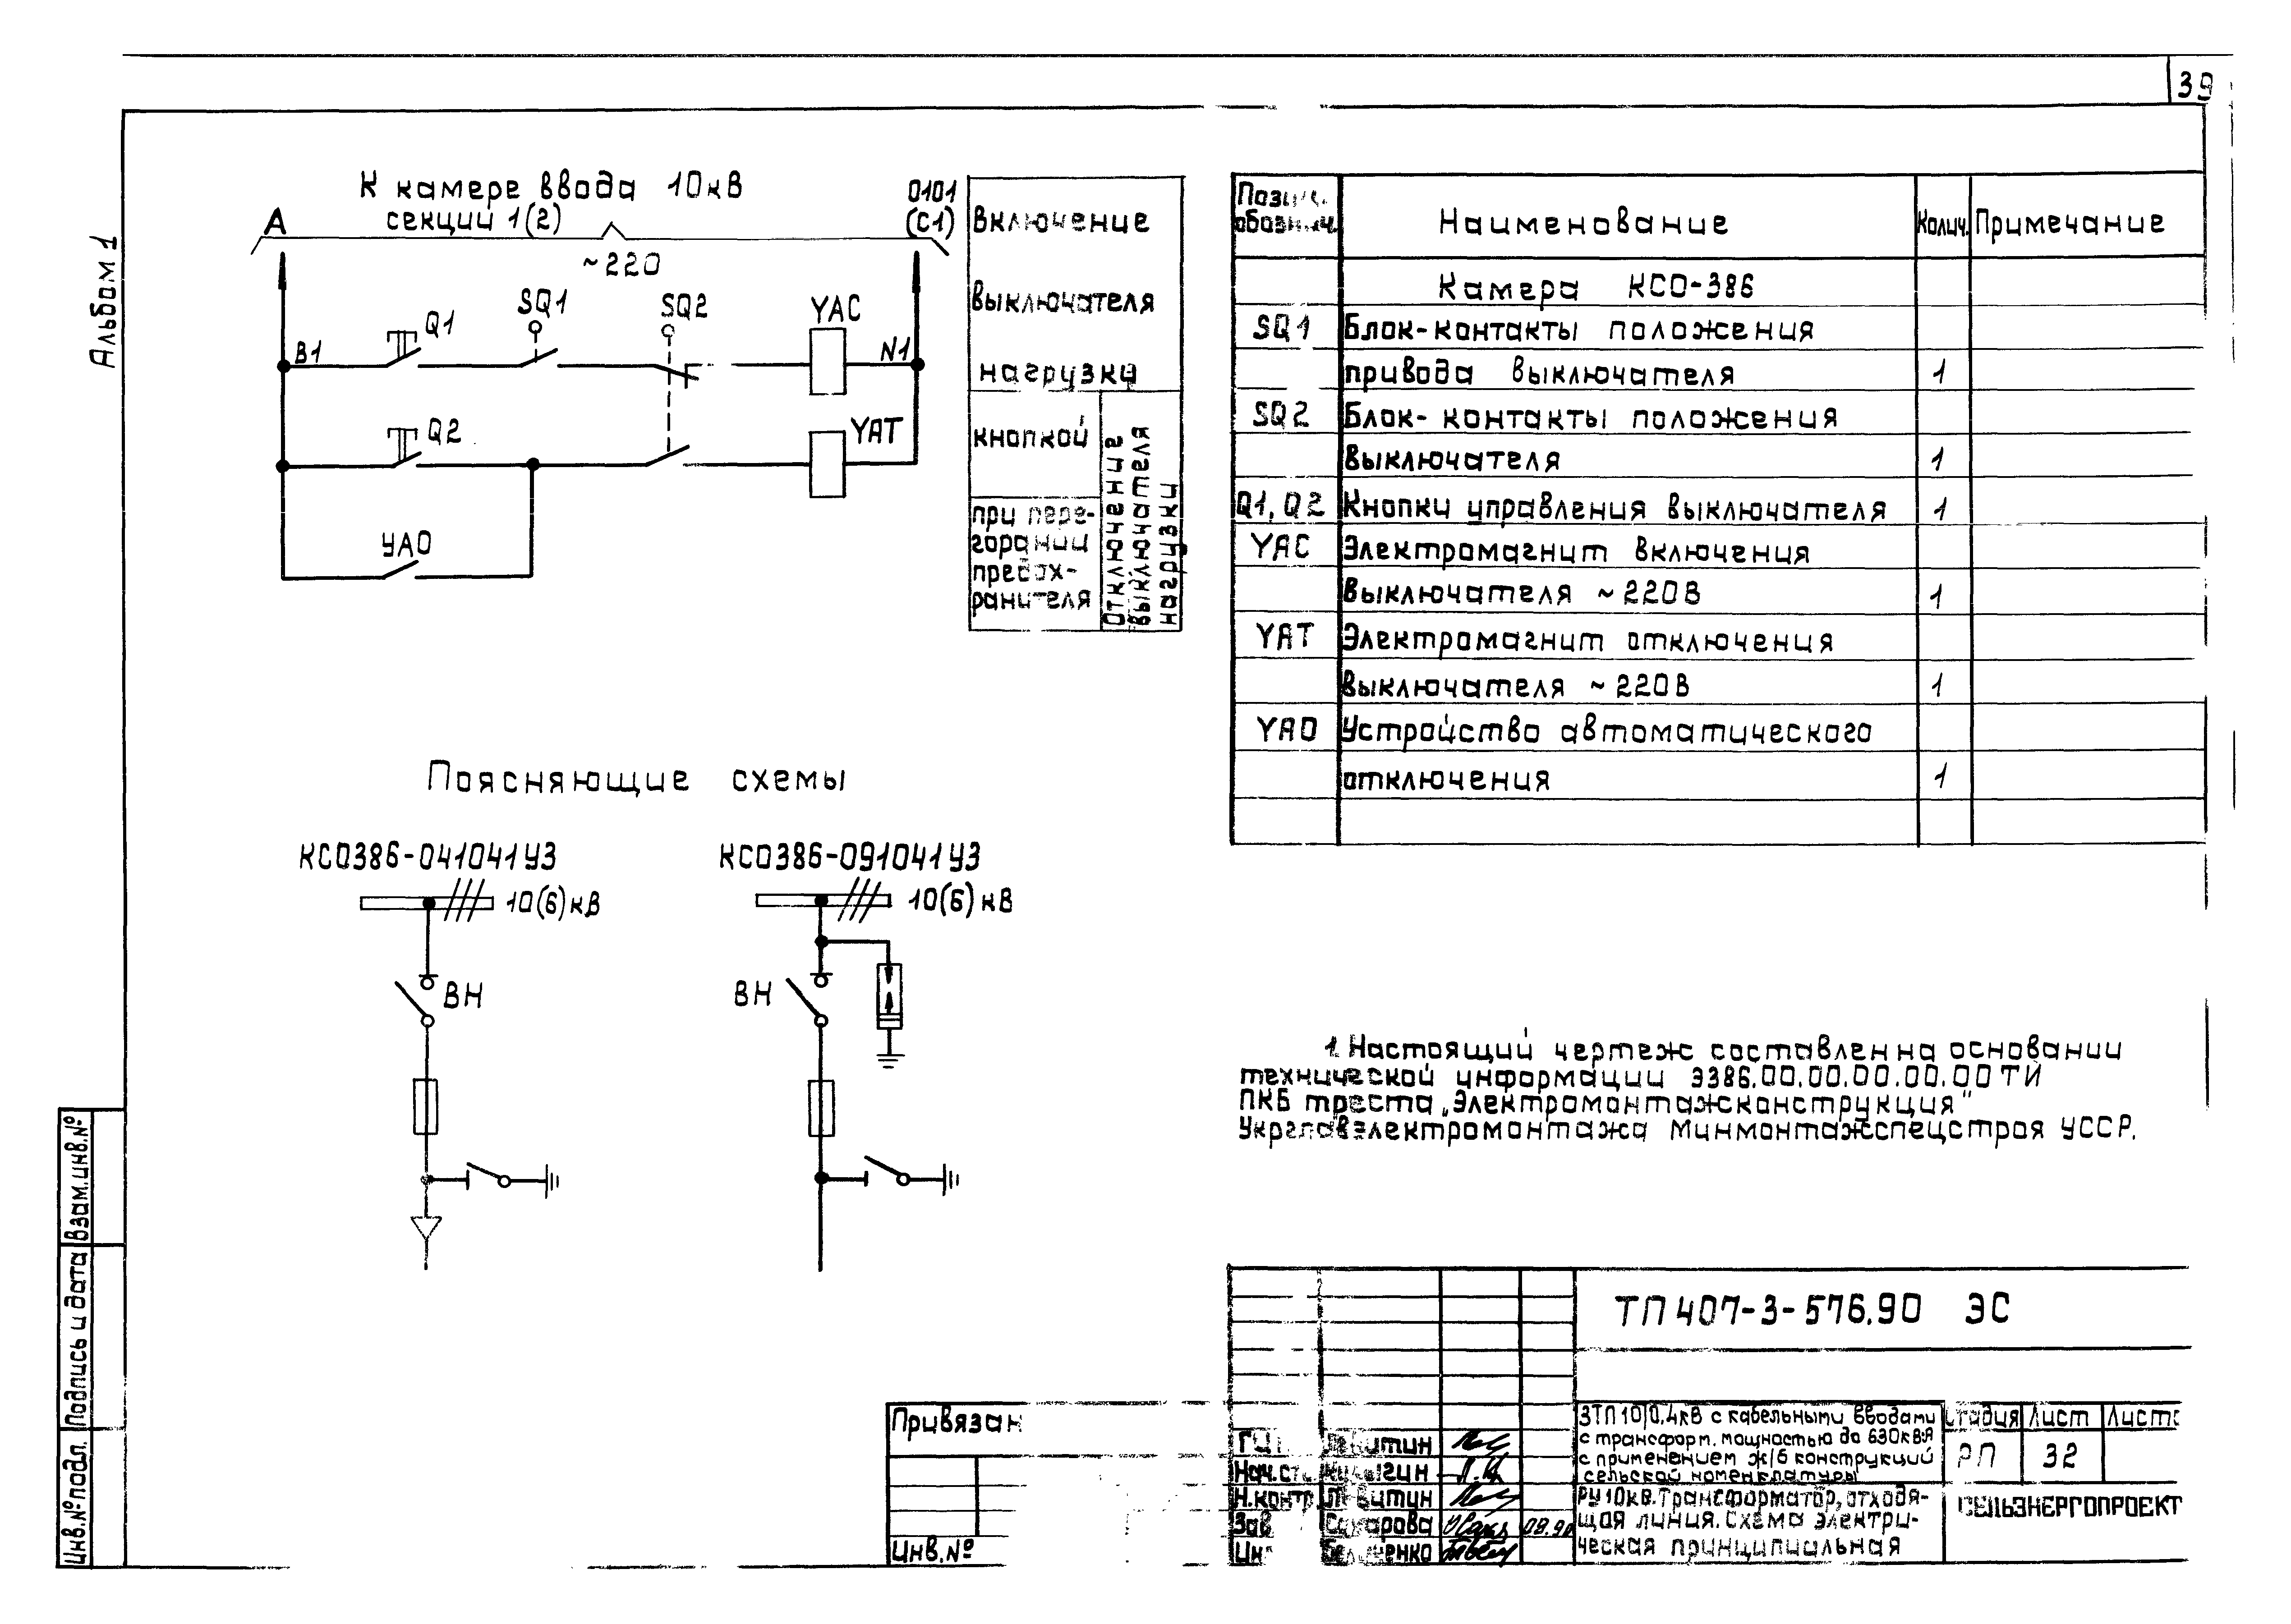 39
Альбом 1
К камере ввода 10кВ
секций 1(2)
А
0101
(С1)
~220
В1
Q1
SQ1
SQ2
YAC
N1
Q2
YAT
YAO
Включение
выключателя
нагрузки
кнопкой
при пере-
горании
предох-
ранителя
Отключение
выключателя
нагрузки
Наименование
Колич.
Примечание
Камера КСО-386
SQ1 Блок-контакты положения
привода выключателя 1
SQ2 Блок-контакты положения
выключателя 1
Q1, Q2 Кнопки управления выключателя 1
YAC Электромагнит включения
выключателя ~220В 1
YAT Электромагнит отключения
выключателя ~220В 1
YAO Устройство автоматического
отключения 1
Поясняющие схемы
КСО386-041041У3
10(6)кВ
ВН
КСО386-091041У3
10(6)кВ
ВН
1. Настоящий чертеж составлен на основании
технической информации Э386.00.00.00.00.00ТИ
ПКБ треста „Электромонтажсконструкция"
Укрглавэлектромонтажа Минмонтажспецстроя УССР.
Взам.инв.№
Подпись и дата
Инв.№подл.
Привязан
Инв.№
Н.контр.
Зав
08.90
ТП 407-3-576.90 ЭС
ЗТП10/0,4кВ с кабельными вводами
с трансформ. мощностью до 630кВ·А
с применением ж/б конструкций
сельской номенклатуры
Стадия Лист
РП 32
РУ10кв.Трансформатор, отходя-
щая линия. Схема электри-
ческая принципиальная
СЕЛЬЭНЕРГОПРОЕКТ